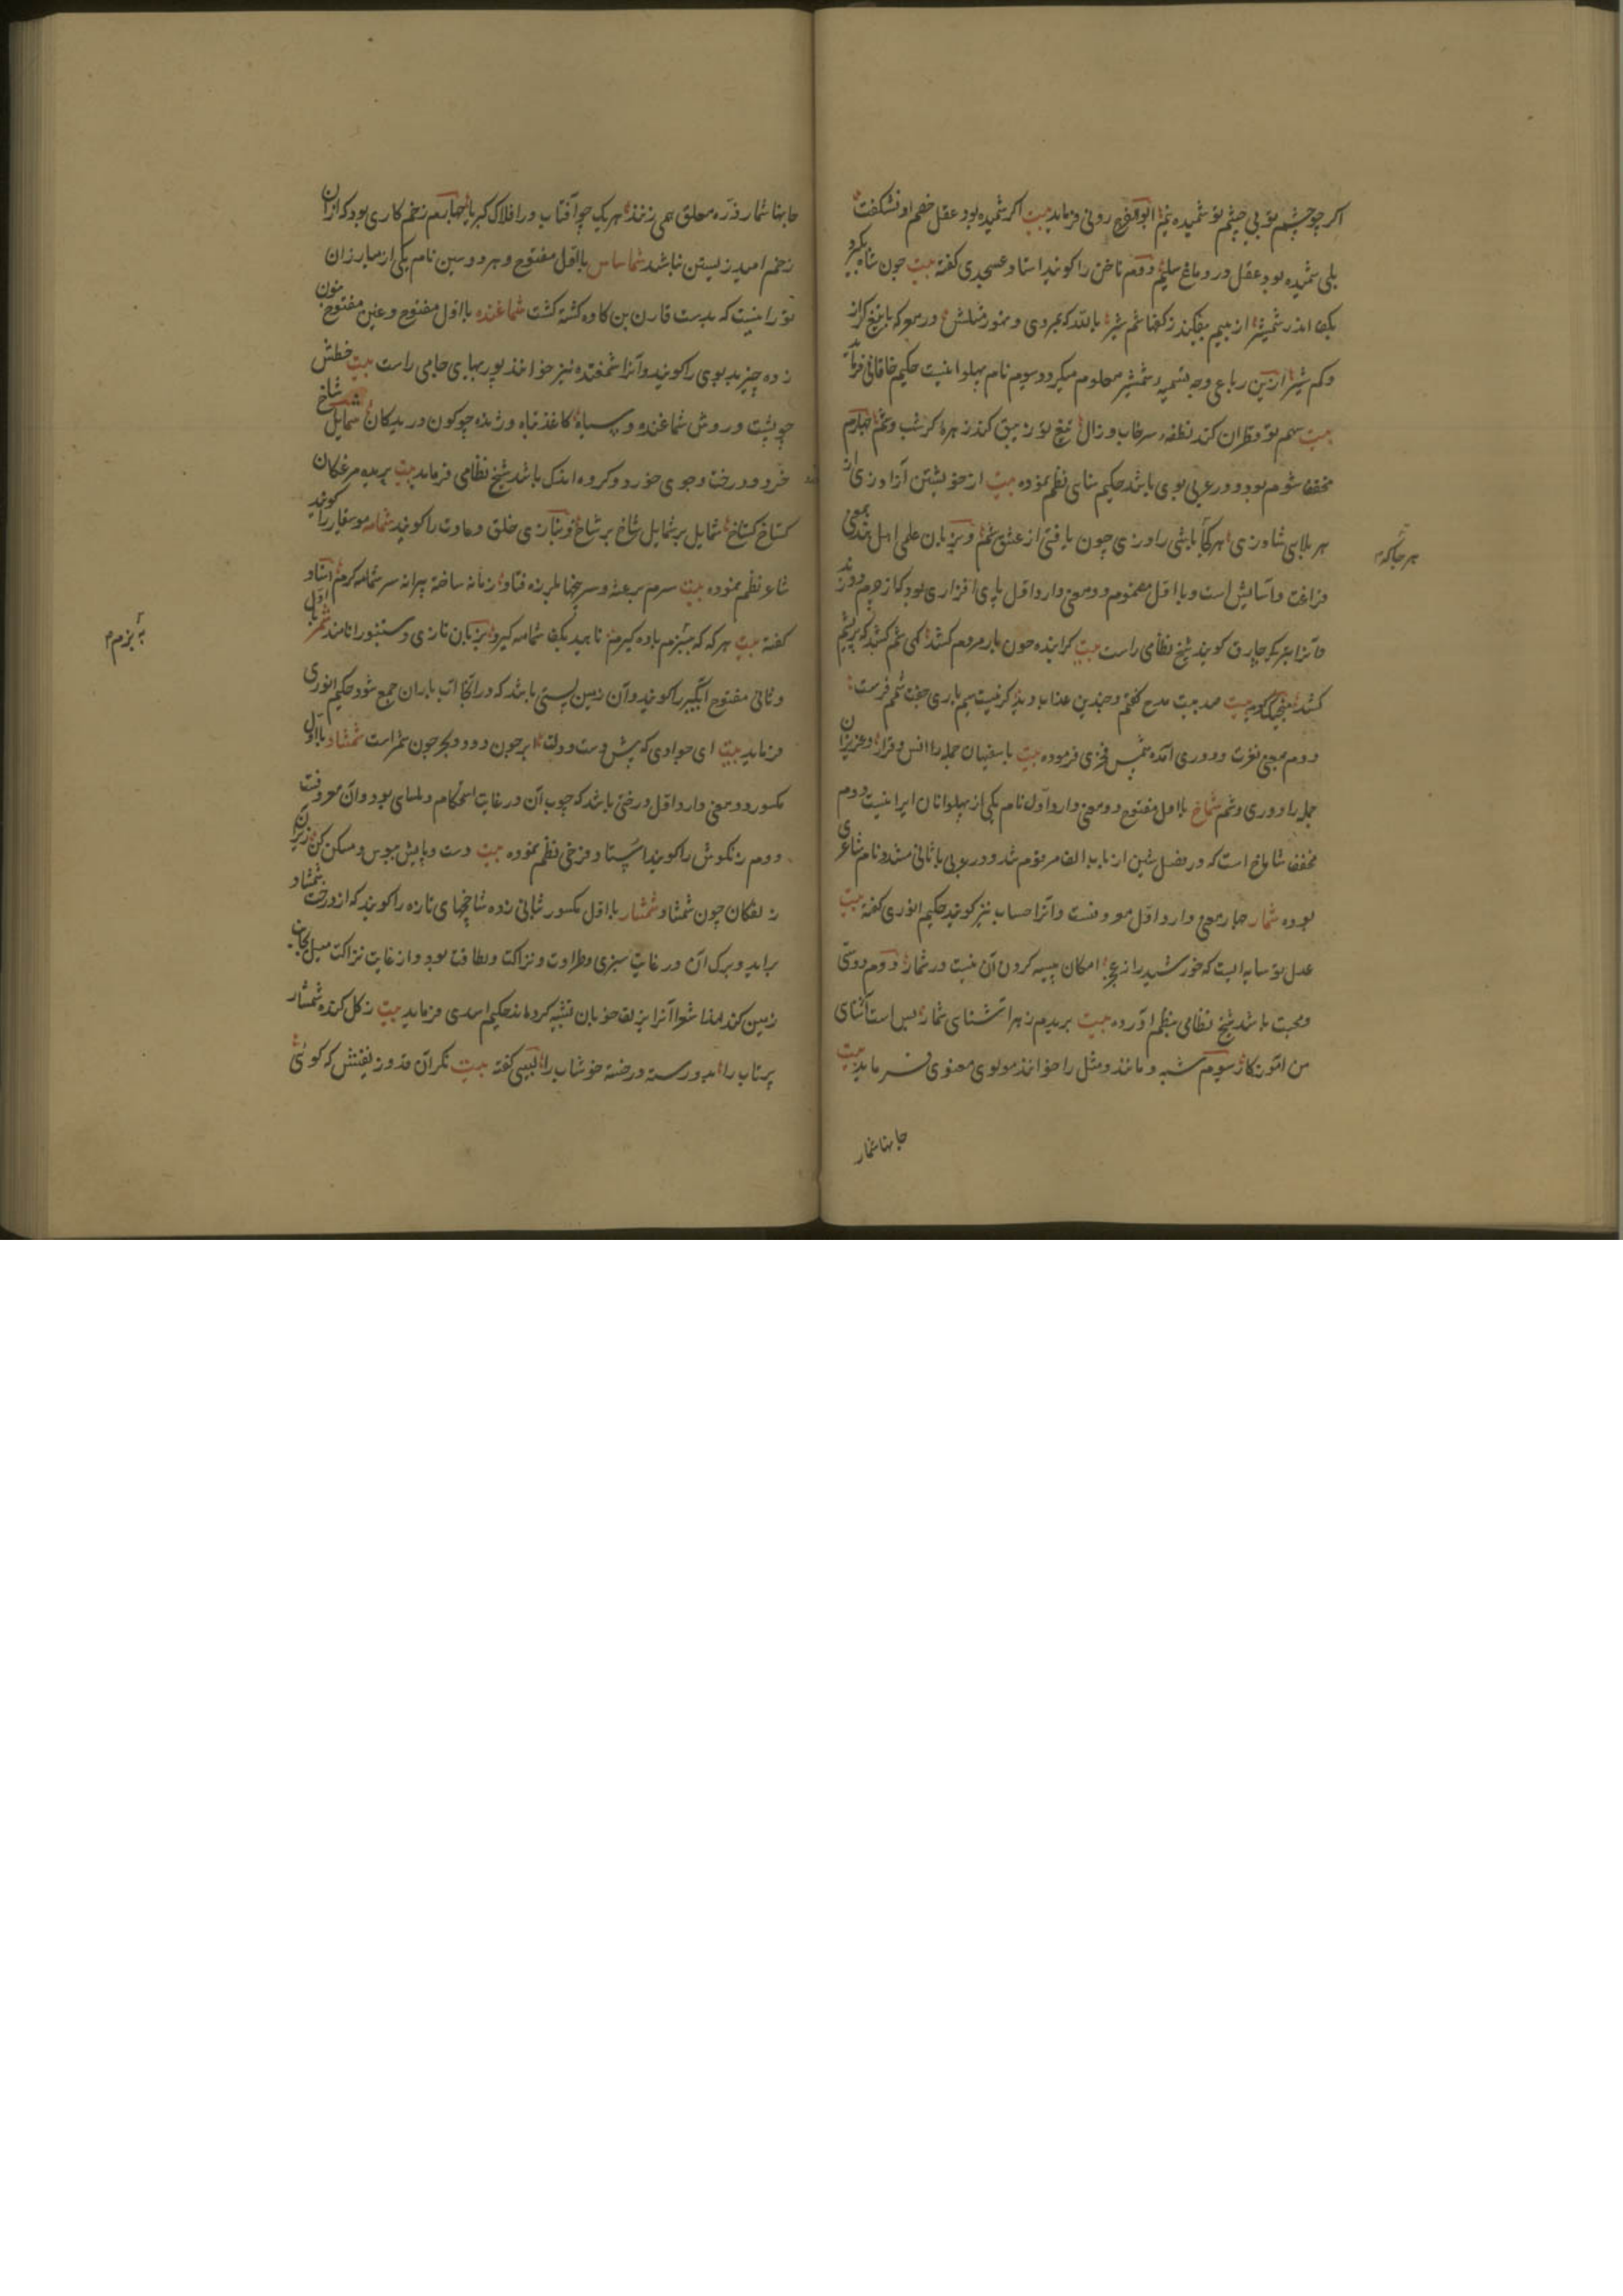 اکر چو چشم تو بی چشم تو شمیده نیم ابوالفرج رونی فرماید بیت اکر شمیده بود عقل خصم او نشکفت
بلی شمیده بود عقل در دماغ سلیم دوم ناخن را کویند استاد عسجدی کفته بیت چون شاه بکیرد
بکف اندر شمشیر از بیم بیفکند ز کفها شم شیر بالله که بمردی و
وکم شیر ازین رباعی وجه تسمیه شمشیر معلوم میکردد سوم نام پهلوانیست حکیم خاقانی فرماید
بیت سهم تو قطران کند نطفه سرخاب و زال تیغ تو زیبق کند زهره کرشسب و شم چهارم
مخفف شوم بود و در عربی بوی باشد حکیم سنایی نظم نموده بیت از خویشتن آزاد زی از
هر بلایی شاد زی هر کجا باشی راد زی چون یافتی از عشق شم و بزبان علمی اهل هند بمعنی
فراغت و آسایش است و با اول مضموم دو معنی دارد اول پای افزاری بود که از چرم دوزند
و آنرا بترکی چارق کویند شیخ نظامی راست بیت کراینده چون بار مردم کشد کهی شم کشد که بریشم
کشد منجیک کوید بیت صد بیت مدح کفتم و چندین عذاب دید کر نیست سیم باری جفت شمم فرست
دوم بمعنی نفرت و دوری آمده شمس فخری فرموده بیت با سفیهان جمله را انس و قرار و عزیزان
جمله را دوری و شم شماخ با اول مفتوح دو معنی دارد اول نام یکی از پهلوانان ایرانیست دوم
مخفف شاماخ است که در فصل شین از باب الف مرقوم شد و در عربی با ثانی مشدد نام شاعری
بوده شمار چهار معنی دارد اول معروفست و آنرا حساب نیز کویند حکیم انوری کفته بیت
عدل تو سایه ایست که خورشید را ز عجز امکان پیسه کردن آن نیست در شمار دوم دوستی
و محبت باشد شیخ نظامی بنظم آورده بیت بریدم زهر آشنای شمار بس است آشنای
من آموزکار سوم شبه و مانند و مثل را خوانند مولوی معنوی فرماید بیت
جانها شمار
هر جا که
جانها شمار ذره معلق همی زنند هر یک چو آفتاب در افلاک کبریا چهارم زخم کاری بود که از آن
زخم امید زیستن نباشد شماساس با اول مفتوح و هر دو سین نام یکی از مبارزان
تورانیست که بدست قارن بن کاوه کشته کشت شماغنده با اول مفتوح و غین مفتوح بنون
زده چیز بدبوی را کویند و آنرا شمغنده نیز خوانند پوربهای جامی راست بیت خطش
چو پشت و روش شماغنده و سیاه کاغذ تباه و ژنده چو کون دریدکان شمایل شاخ
خرد و درخت و جوی خورد و کروه اندک باشد شیخ نظامی فرماید بیت پریده مرغکان
کستاخ کستاخ شمایل بر شمایل شاخ بر شاخ و بتازی خلق و عادت را کویند شمامه موسیقار را کویند
شاعر نظم نموده بیت
کفته بیت هر که که بیزم باده کیرم ناهید بکف شمامه کیرد بزبان تازی دستنبو را نامند شمر با اول
و ثانی مفتوح آبکیر را کویند و آن زمین پستی باشد که در آنجا آب باران جمع شود حکیم انوری
فرماید بیت ای جوادی که پیش دست و دلت ابر چون دود و بحر چون شمر است شمشاد با اول
مکسور دو معنی دارد اول درختی باشد که چوب آن در غایت استحکام و بود و آن معروفست
دوم مرزنکوش را کویند استاد فرخی نظم نموده بیت دست و پایش ببوس و مسکن کن زیر آن
زلفکان چون شمشاد شمشار با اول مکسور ثبانی زده شاخچهای تازه را کویند که از درخت شمشاد
براید و برک آن در غایت سبزی و طراوت و نزاکت و لطافت بود و از غایت نزاکت میل بجانب
زمین کند لهذا شعرا آنرا بزلف خوبان تشبیه کرده اند حکیم اسدی فرماید بیت ز کل کنده شمشار
پرتاب را بدو رسته در خسته خوشاب را لبیبی کفته بیت نکر آن قد و زلفینش که کوئی
به بزم